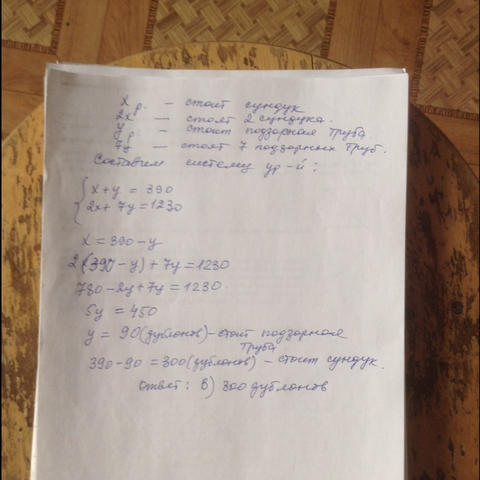 x р. – стоит сундук
2x р. – стоят 2 сундука.
y р – стоит подзорная труба
7y – стоят 7 подзорных труб.
Составим систему ур-й:
x + y = 390
2x + 7y = 1230
x = 390 – y
2(390 – y) + 7y = 1230
780 – 2y + 7y = 1230.
5y = 450
y = 90 (дублонов) – стоит подзорная
труба
390 – 90 = 300 (дублонов) – стоит сундук.
Ответ: В) 300 дублонов